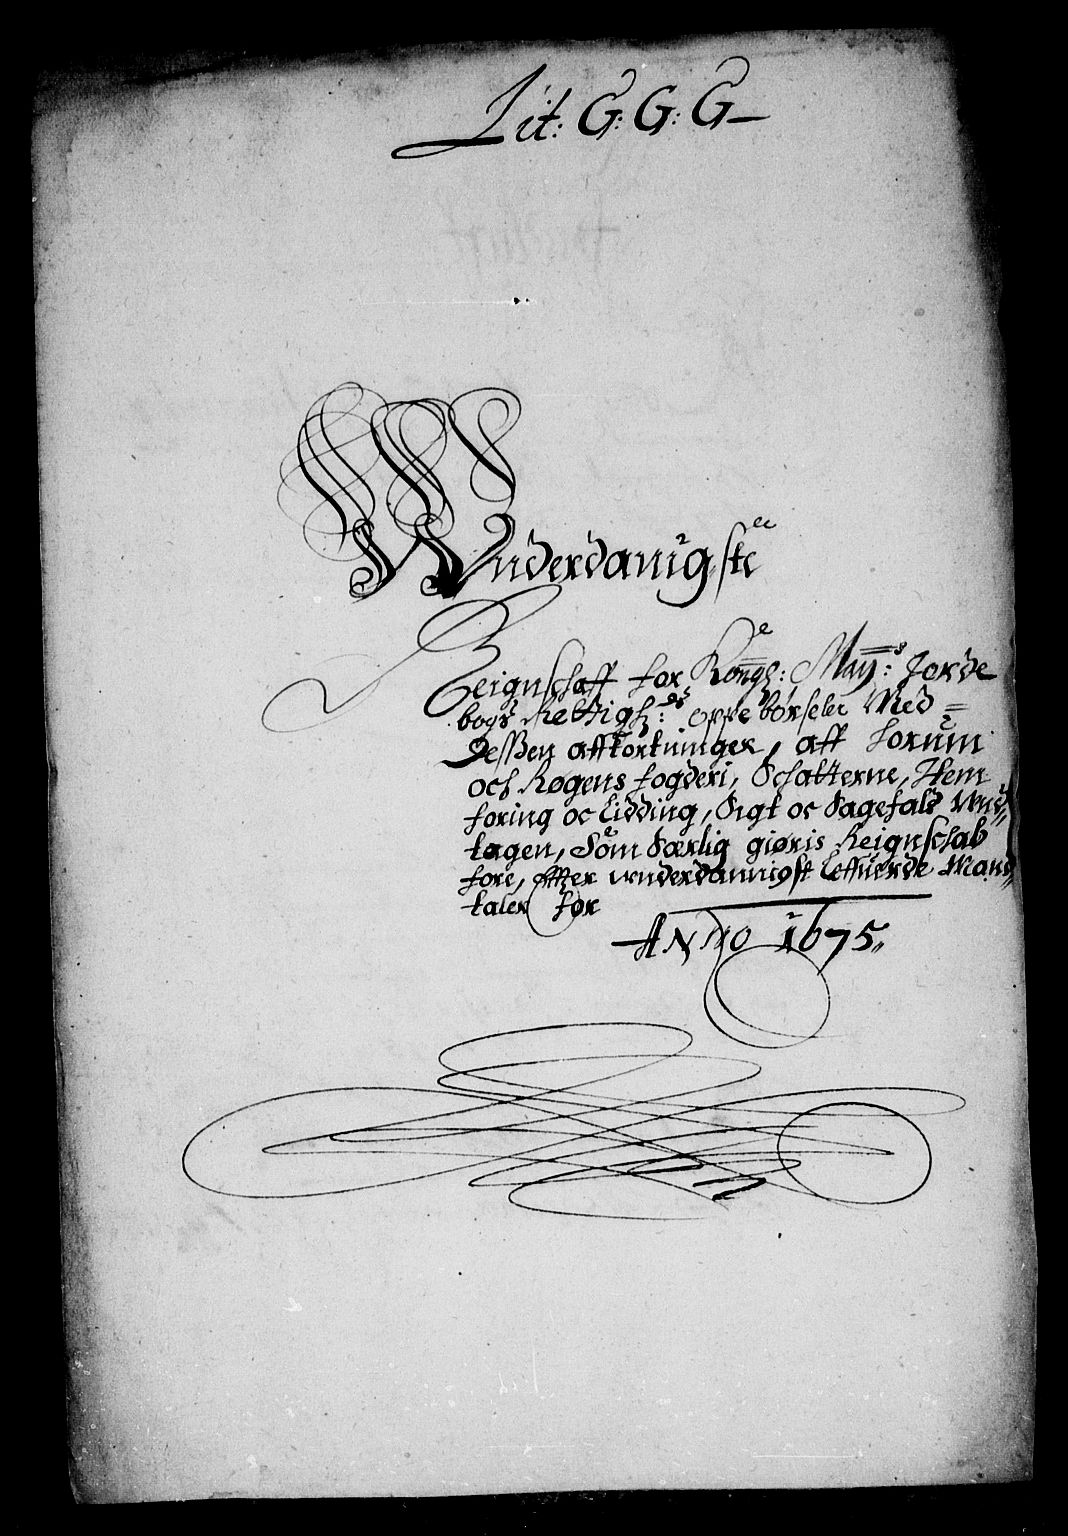 Lit: G: G: G
Wnderdanigste
Reignschaff for Kongl: May:s Jorde
bogs Rettigh:ds oppebørseler Med=
Dessen affkortninger, aff Forum
och Røgens fogderi, Schatterne, Hem
foring oc Lidding, Sigt oc Sagefald Und
tagen, Som Særlig giøris Reignschab
fore, effter wnderdannigst Leffuerde Mand
taler for
ANNO 1675.